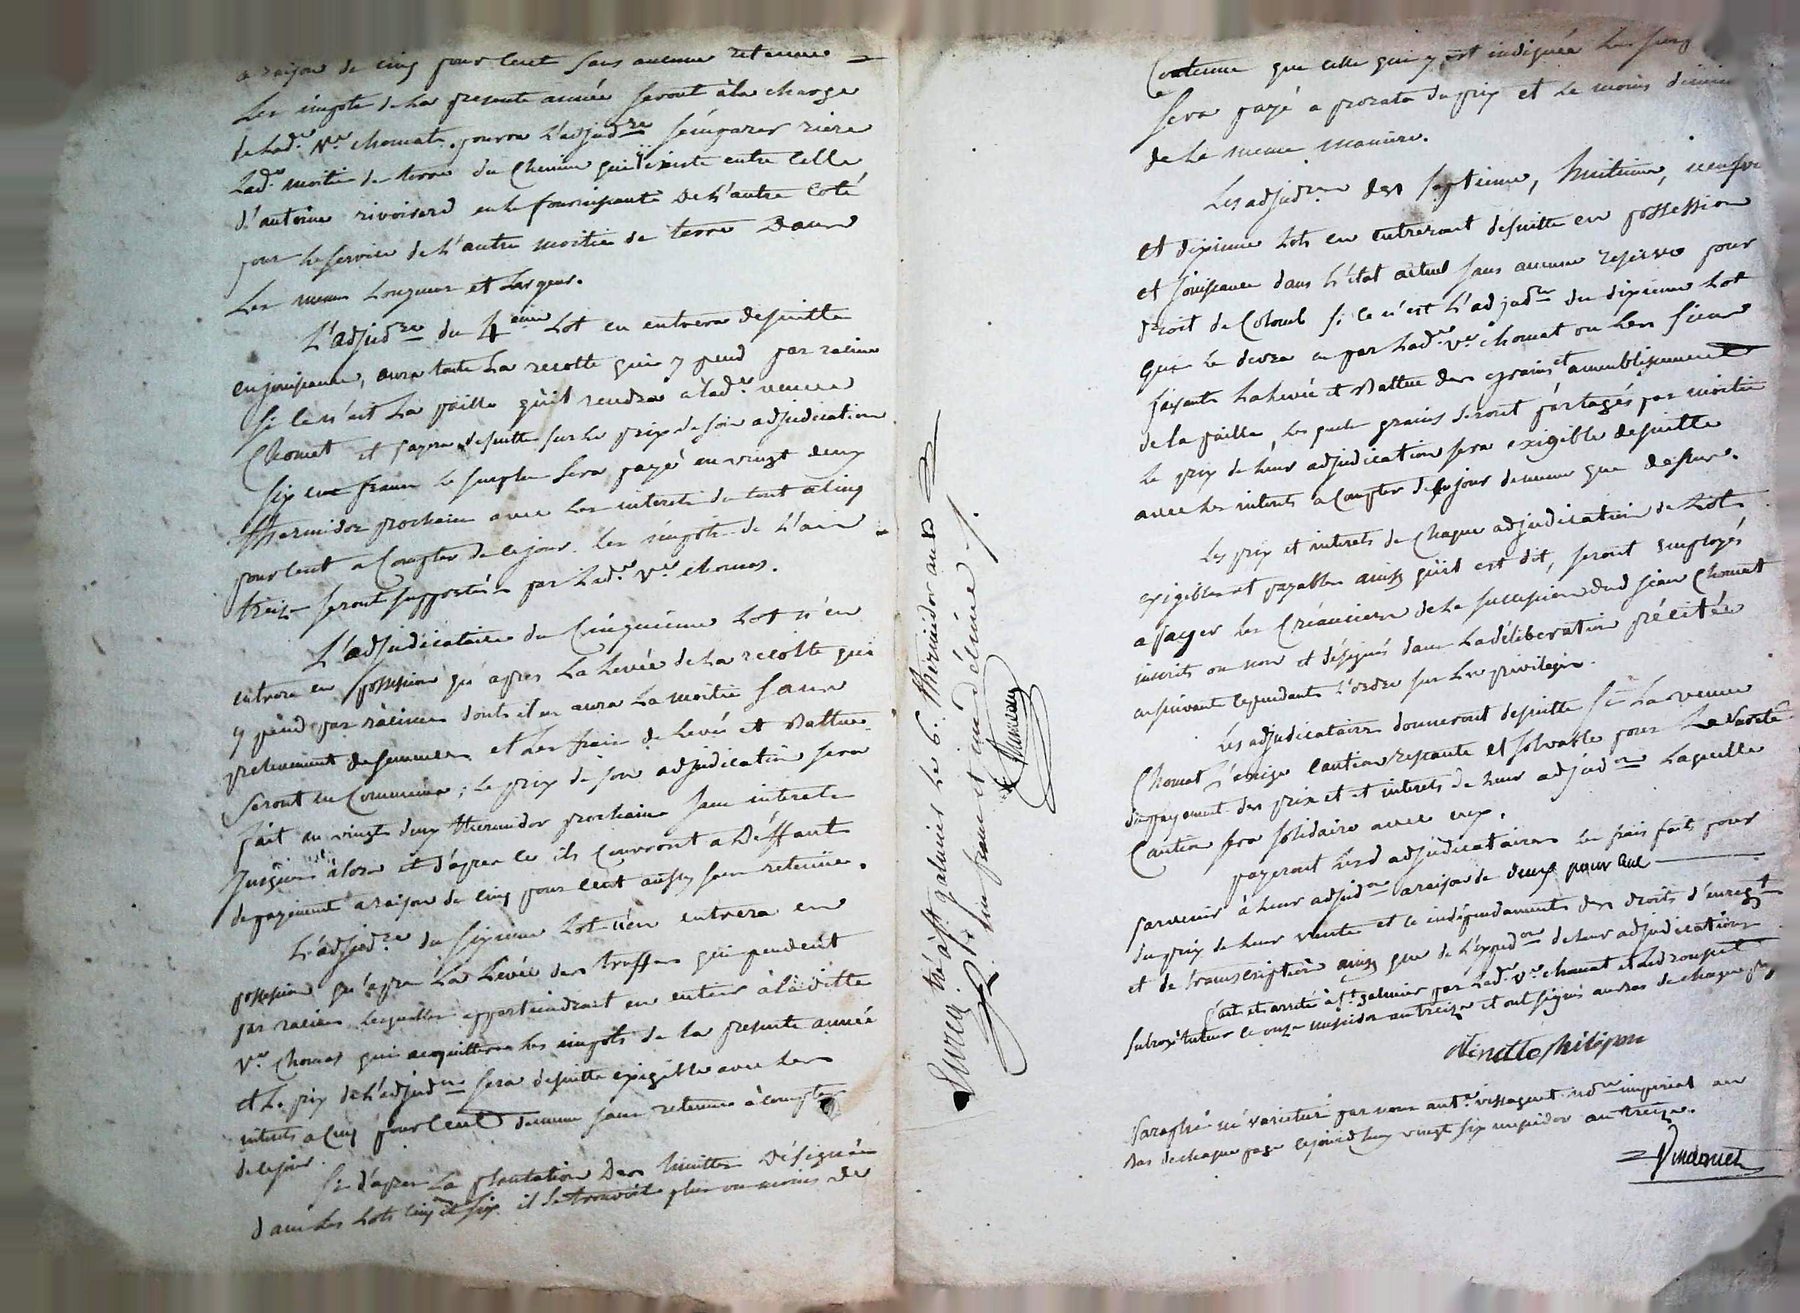 a raison de cinq pour cent sans aucune retenue
Les impots de la presente année seront à la charge
de Lad.e v.e chomat. pourra L'adjud.re s'emparer riere
Lad.e moitié de terre du Chemin qui existe entre Celle
d'antoine rivoirard en le fournissant de L'autre Coté
pour Le service de L'autre moitié de terre Dans
Les memes Longueur et Largeur.
L'adjud.re du 4.eme Lot en entrera desuitte
en jouissance, aura toute La recolte qui y pend par racine
si ce n'est La paille qu'il rendra a lad.e veuve
Chomat et payera desuitte sur Le prix de son adjudication
six cent francs Le surplus sera payé au vingt deux
thermidor prochain avec Les interets du tout a cinq
pour cent a Compter de ce jour. Les impots de L'an
treize seront supportés par Lad.e v.e chomat.
L'adjudicataire du Cinquieme Lot n'en
entrera en possession qu'apres La Levée de La recolte qui
y pend par racines dont il en aura La moitié sans
prelevement de semences et Les frais de Levée et Battue
seront en Commun ; Le prix de son adjudication sera
fait au vingt deux thermidor prochain sans interets
jusqu'alors et d'apres Ce ils Courront a Déffaut
de payement a raison de cinq pour cent aussy sans retenue.
L'adjud.re du sixieme Lot n'en entrera en
possession qu'apres La Levée des truffes qui pendent
par racines Lesquelles appartiendront en entier à laditte
v.e Chomat qui acquittera Les impots de La presente année
et Le prix de L'adjud.on sera desuitte exigible avec Les
interets a Cinq pour Cent sans retenue à compter
de ce jour.
Si d'apres La plantation Des limittes Désignées
dans Les Lots Cinq et six il se trouvoit plus ou moins de
Surea t.re à s.t galmier Le 6. thermidor an 13
un franc et un décime
Contenue que Celle qui y est indiquée Le surp
sera payé a prorata du prix et Le moins diminu
de La meme maniere.
Les adjud.res des septieme, huitieme, neufvi
et dixieme Lots en entreront desuitte en possession
et jouissance dans L'état actuel sans aucune reserve pour
droit de Colond si ce n'est L'adjud.re du dixieme Lot
que Le devra en par Lad.e v.e chomat ou Les siens
faisants La Levée et Battue des grains et amenblissement
de la paille, Les quels grains seront partagés par moitié
Le prix de Leur adjudication sera exigible desuitte
avec Les interets a Compter de ce jour de meme que dessus.
Les prix et interets de Chaque adjudication de Lots
exigibles et payables ainsy qu'il est dit, seront employés
a payer Les Créanciers de La succession dud jean Chomat
inscrits ou non et désignés dans La déliberation précitée
en suivant cependants L'ordre sur Les privilegiés.
Les adjudicataires donneront desuitte si La veuve
Chomat L'exige Caution ressante et solvable pour La sureté
du payement des prix et interets de Leur adjud.on Laquelle
Caution sera solidaire avec eux.
payeront Lesd adjudicataires Les frais faits pour
parvenir à Leur adjud.on a raison de deux pour Cent
du prix de Leur vente et ce independamment des droits d'enreg.t
et de transcription ainsy que de L'exped.on de Leur adjudication
fait et arrété à S.t galmier par Lad.e v.e chomat et Led
Subrogé tuteur Ce onze messidor an treize et ont signés au Bas de chaque page
philippon
Paraphé ne varietur par nous ant.e not.re imperial au
Bas de chaque page Cejourd'huy vingt six messidor an treize.